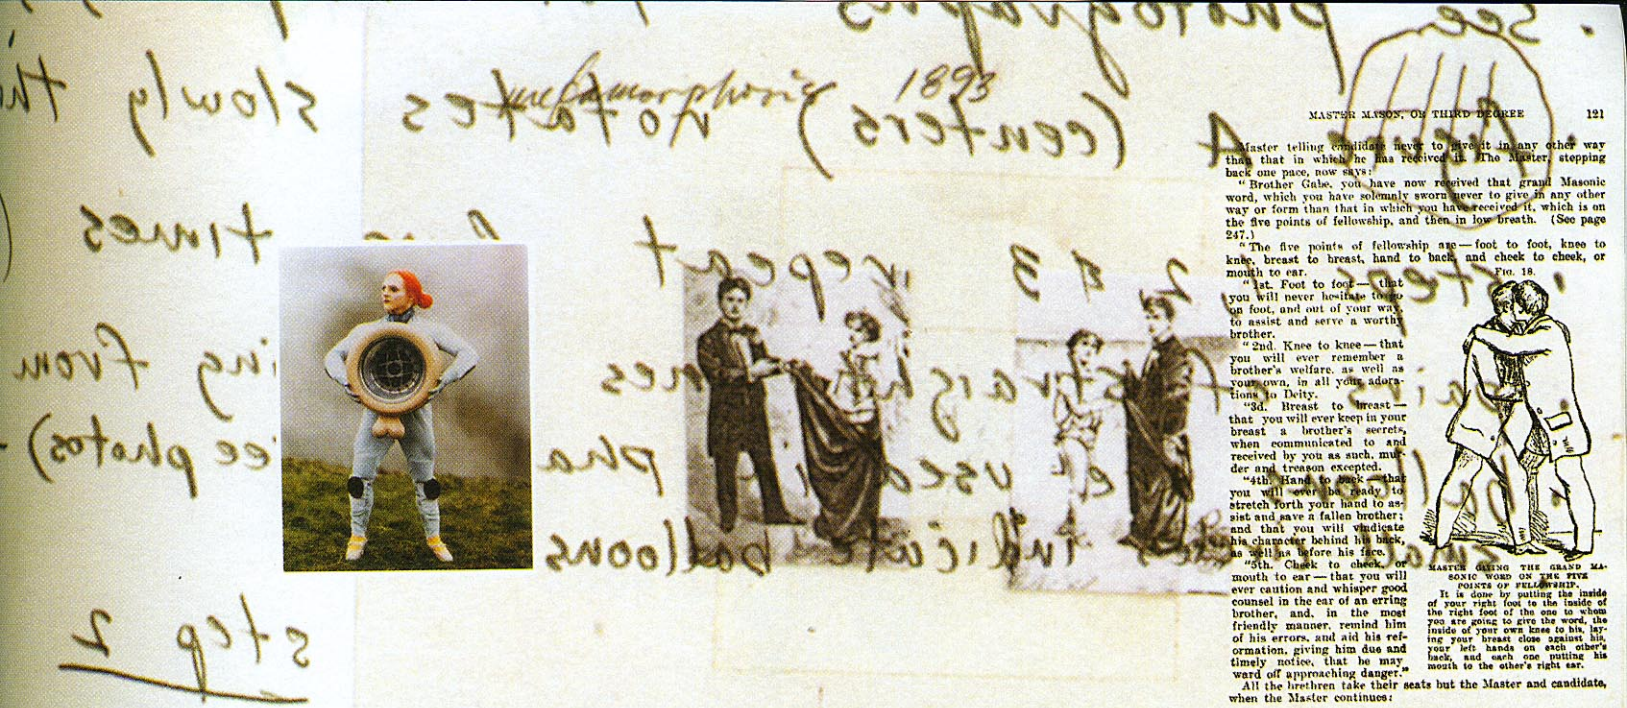 . See photographs
metamorphosis 1893
A (centers) rotates slowly
2 & 3 repeat times
from
(see photos)
balloons
step 2
MASTER MASON, OR THIRD DEGREE 121
Master telling candidate never to give it in any other way
than that in which he has received it. The Master, stepping
back one pace, now says:
"Brother Gabe, you have now received that grand Masonic
word, which you have solemnly sworn never to give in any other
way or form than that in which you have received it, which is on
the five points of fellowship, and then in low breath. (See page
247.)
"The five points of fellowship are—foot to foot, knee to
knee, breast to breast, hand to back, and cheek to cheek, or
mouth to ear.
"1st. Foot to foot—that
you will never hesitate to go
on foot, and out of your way,
to assist and serve a worthy
brother.
"2nd. Knee to knee—that
you will ever remember a
brother's welfare, as well as
your own, in all your adora-
tions to Deity.
"3d. Breast to breast—
that you will ever keep in your
breast a brother's secrets,
when communicated to and
received by you as such, mur-
der and treason excepted.
"4th. Hand to back—that
you will ever be ready to
stretch forth your hand to as-
sist and save a fallen brother;
and that you will vindicate
his character behind his back,
as well as before his face.
"5th. Cheek to cheek, or
mouth to ear—that you will
ever caution and whisper good
counsel in the ear of an erring
brother, and, in the most
friendly manner, remind him
of his errors, and aid his ref-
ormation, giving him due and
timely notice, that he may
ward off approaching danger."
FIG. 18.
MASTER GIVING THE GRAND MA-
SONIC WORD ON THE FIVE
POINTS OF FELLOWSHIP.
It is done by putting the inside
of your right foot to the inside of
the right foot of the one to whom
you are going to give the word, the
inside of your own knee to his, lay-
ing your breast close against his,
your left hands on each other's
back, and each one putting his
mouth to the other's right ear.
All the brethren take their seats but the Master and candidate,
when the Master continues: